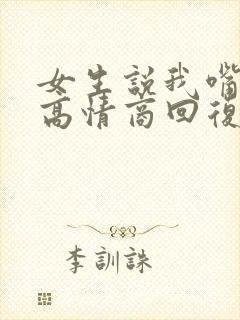 女生説我嘴
高情商回復
李訓誅